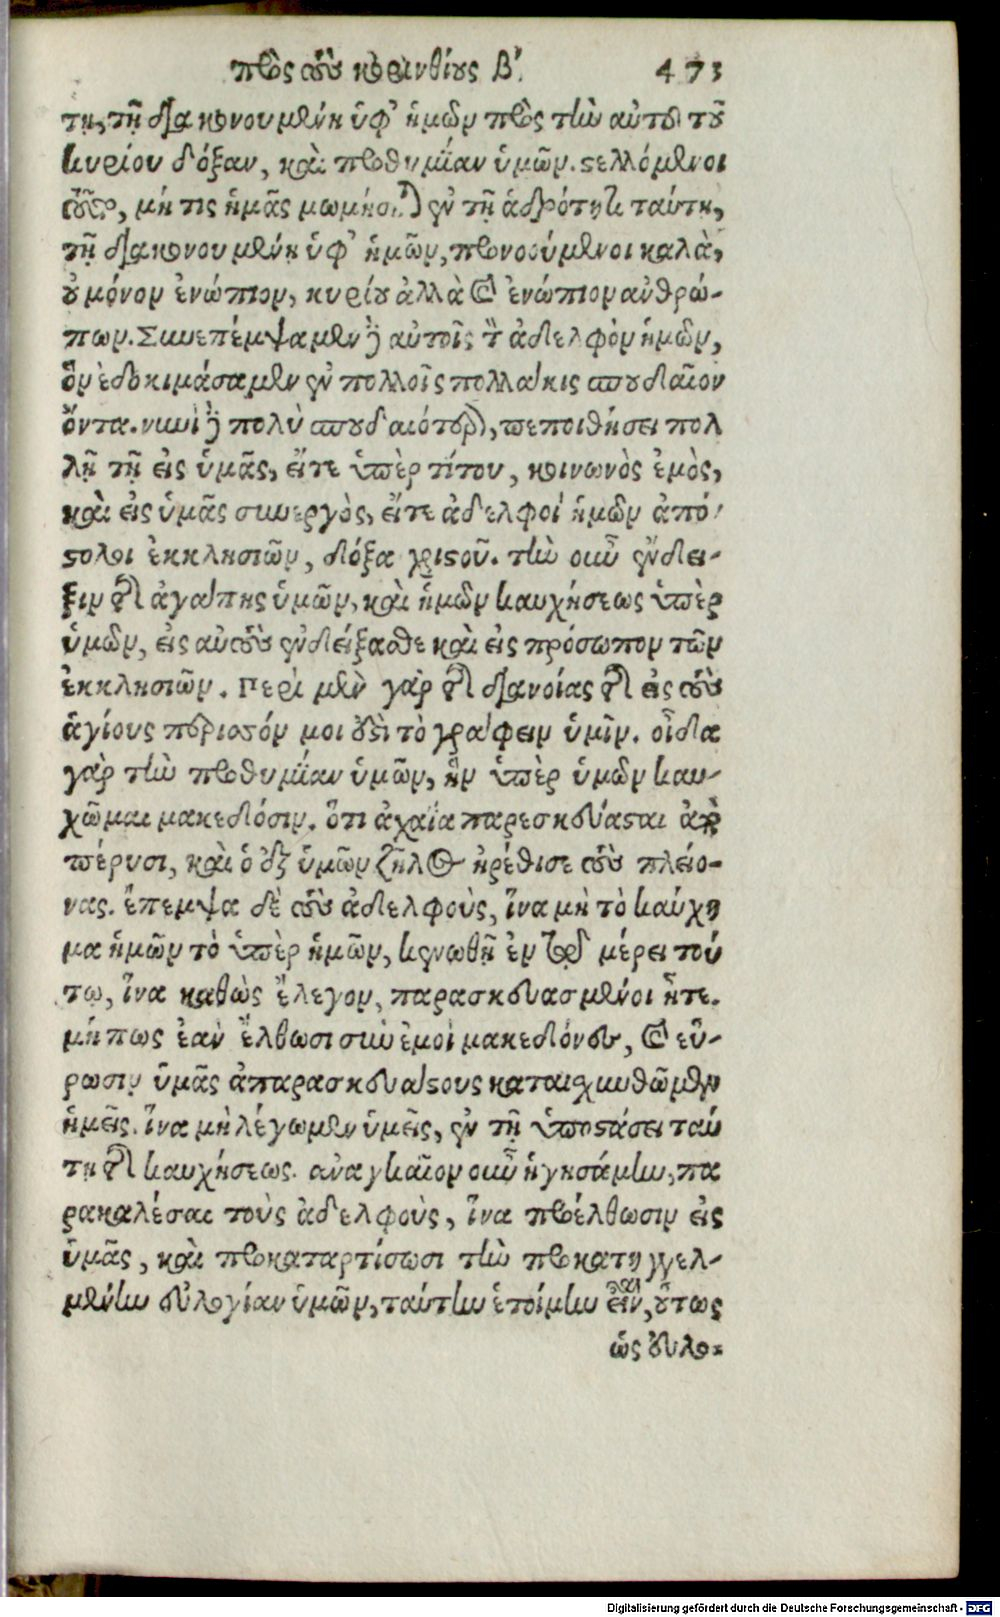 πρὸς τοὺς κορινθίους Β΄. 473
τῃ, τῇ διακονουμένῃ ὑφ' ἡμῶν πρὸς τὴν αὐτοῦ τοῦ
κυρίου δόξαν, καὶ προθυμίαν ὑμῶν. στελλόμενοι
τοῦτο, μή τις ἡμᾶς μωμήσηται ἐν τῇ ἁδρότητι ταύτῃ,
τῇ διακονουμένῃ ὑφ' ἡμῶν, προνοούμενοι καλὰ,
οὐ μόνον ἐνώπιον, κυρίου ἀλλὰ καὶ ἐνώπιον ἀνθρώ-
πων. Συνεπέμψαμεν δὲ αὐτοῖς τὸν ἀδελφὸν ἡμῶν,
ὃν ἐδοκιμάσαμεν ἐν πολλοῖς πολλάκις σπουδαῖον
ὄντα. νυνὶ δὲ πολὺ σπουδαιότερον, πεποιθήσει πολ
λῇ τῇ εἰς ὑμᾶς, εἴτε ὑπὲρ τίτου, κοινωνὸς ἐμὸς,
καὶ εἰς ὑμᾶς συνεργὸς, εἴτε ἀδελφοὶ ἡμῶν ἀπό
στολοι ἐκκλησιῶν, δόξα χριστοῦ. τὴν οὖν ἔνδει-
ξιν τῆς ἀγάπης ὑμῶν, καὶ ἡμῶν καυχήσεως ὑπὲρ
ὑμῶν, εἰς αὐτοὺς ἐνδείξασθε καὶ εἰς πρόσωπον τῶν
ἐκκλησιῶν. Περὶ μὲν γὰρ τῆς διανοίας τῆς εἰς τοὺς
ἁγίους περισσόν μοι ἐστὶ τὸ γράφειν ὑμῖν. οἶδα
γὰρ τὴν προθυμίαν ὑμῶν, ἣν ὑπὲρ ὑμῶν καυ-
χῶμαι μακεδόσιν. ὅτι ἀχαΐα παρεσκεύασται ἀπὸ
πέρυσι, καὶ ὁ ἐξ ὑμῶν ζῆλος ἠρέθισε τοὺς πλείο-
νας. ἔπεμψα δὲ τοὺς ἀδελφοὺς, ἵνα μὴ τὸ καύχη
μα ἡμῶν τὸ ὑπὲρ ἡμῶν, κενωθῇ ἐν τῷ μέρει τού
τῳ, ἵνα καθὼς ἔλεγον, παρασκευασμένοι ἦτε.
μήπως ἐὰν ἔλθωσι σὺν ἐμοὶ μακεδόνες, καὶ εὕ-
ρωσιν ὑμᾶς ἀπαρασκευάστους καταισχυνθῶμεν
ἡμεῖς. ἵνα μὴ λέγωμεν ὑμεῖς, ἐν τῇ ὑποστάσει ταύ
τῃ τῆς καυχήσεως. ἀναγκαῖον οὖν ἡγησάμην, πα
ρακαλέσαι τοὺς ἀδελφοὺς, ἵνα προέλθωσιν εἰς
ὑμᾶς, καὶ προκαταρτίσωσι τὴν προκατηγγελ-
μένην εὐλογίαν ὑμῶν, ταύτην ἑτοίμην εἶναι, οὕτως
ὡς εὐλο-
Digitalisierung gefördert durch die Deutsche Forschungsgemeinschaft - DFG